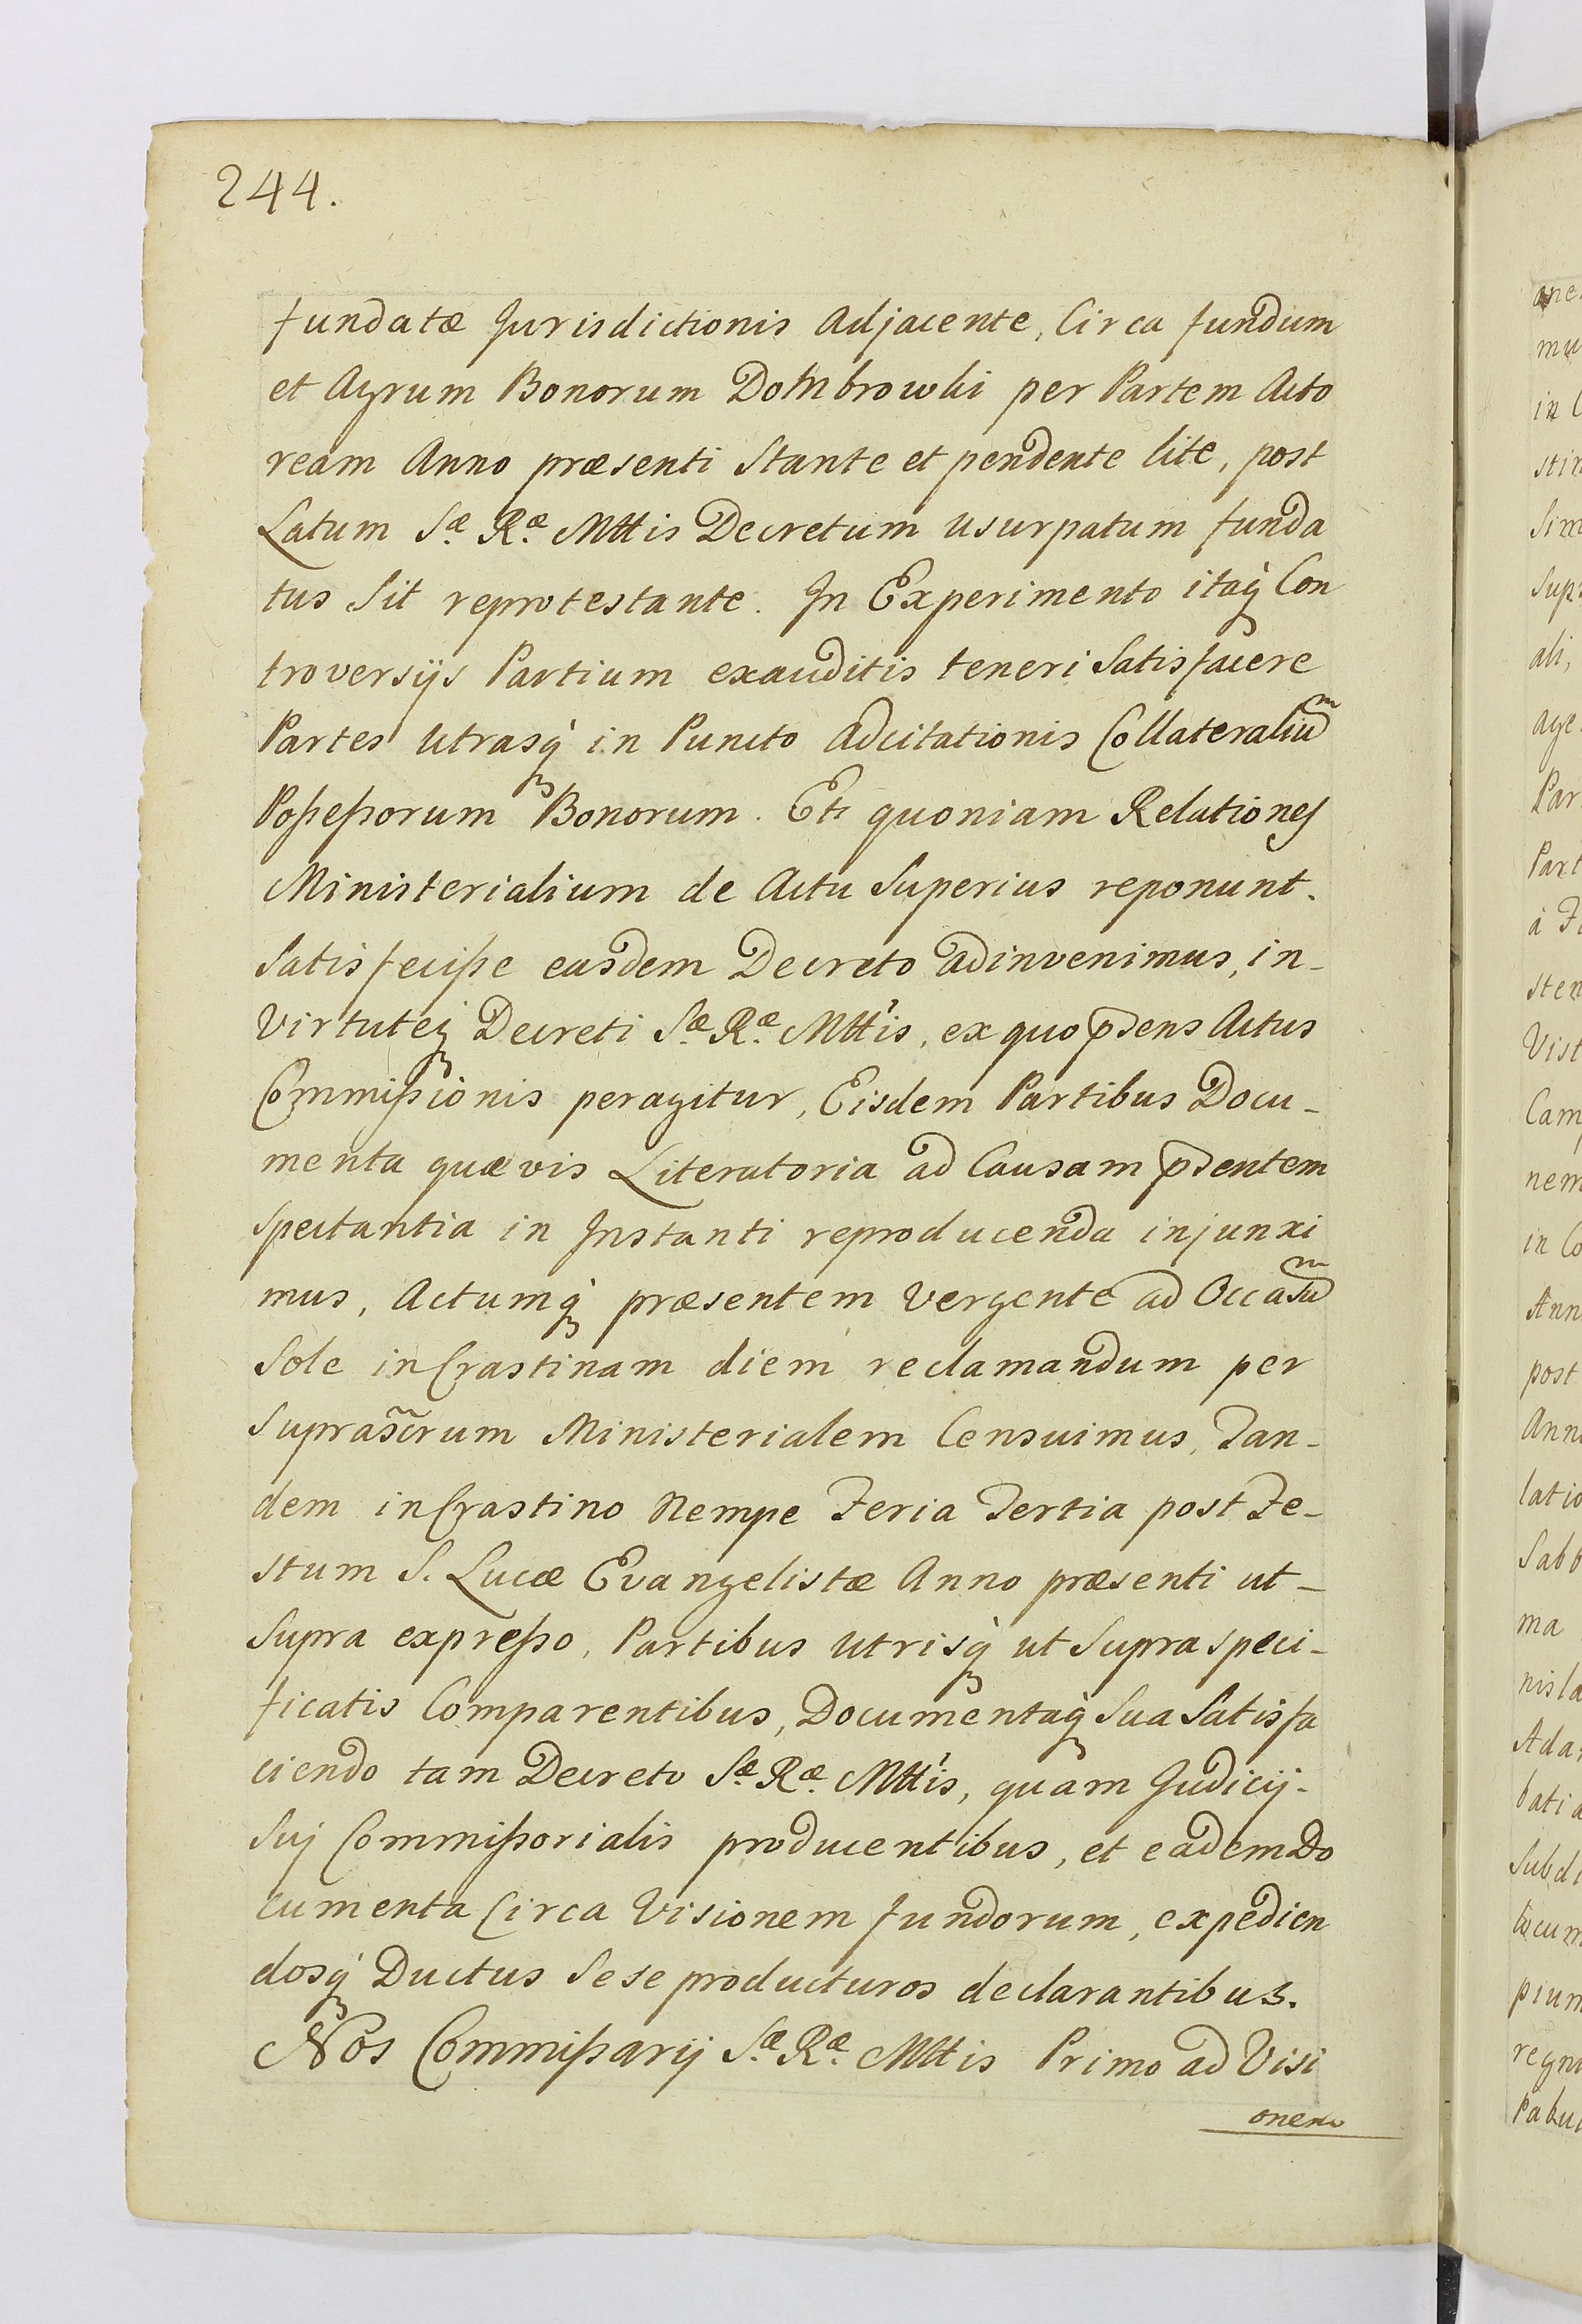 244.
fundatæ Jurisdictionis Adjacente, Circa fundum
et Agrum Bonorum Dombrowki per Partem Acto
ream Anno præsenti Stante et pendente lite, post
Latum Sæ Ræ Mttis Decretum usurpatum funda
tus Sit reprotestante. In Experimento itaq̀ Con
troversijs Partium exauditis teneri Satisfacere
Partes Utrasq̀ in Puncto Adcitationis Collateraliũm
Poßeßorum Bonorum. Et quoniam Relationes
Ministerialium de Actu Superius reponunt.
Satisfeciße easdem Decreto adinvenimus, in-
Virtuteq̀ Decreti Sæ Ræ Mttis, ex quo p̄sens Actus
Commißionis peragitur, Eisdem Partibus Docu-
menta quævis Literatoria ad Causam p̄sentem
Spectantia in Instanti reproducenda injunxi
mus, Actumq̀ præsentem Vergente ad Occasũm
Sole in Crastinam diem reclamandum per
Suprasc̃rum Ministerialem Censuimus, Tan-
dem in Crastino Nempe Feria Tertia post Fe-
stum S. Lucæ Evangelistæ Anno præsenti ut-
Supra expreßo, Partibus Utrisq̀ ut Supra speci-
ficatis Comparentibus, Documentaq̀ Sua Satisfa
ciendo tam Decreto Sæ Ræ Mttis, quam Judicij-
Suj Commißorialis producentibus, et eadem Do
cumenta Circa Visionem fundorum, expedien
dosq̀ Ductus Sese producturos declarantibus.
Nos Commißarij Sæ Ræ Mttis Primo ad Visi
onem